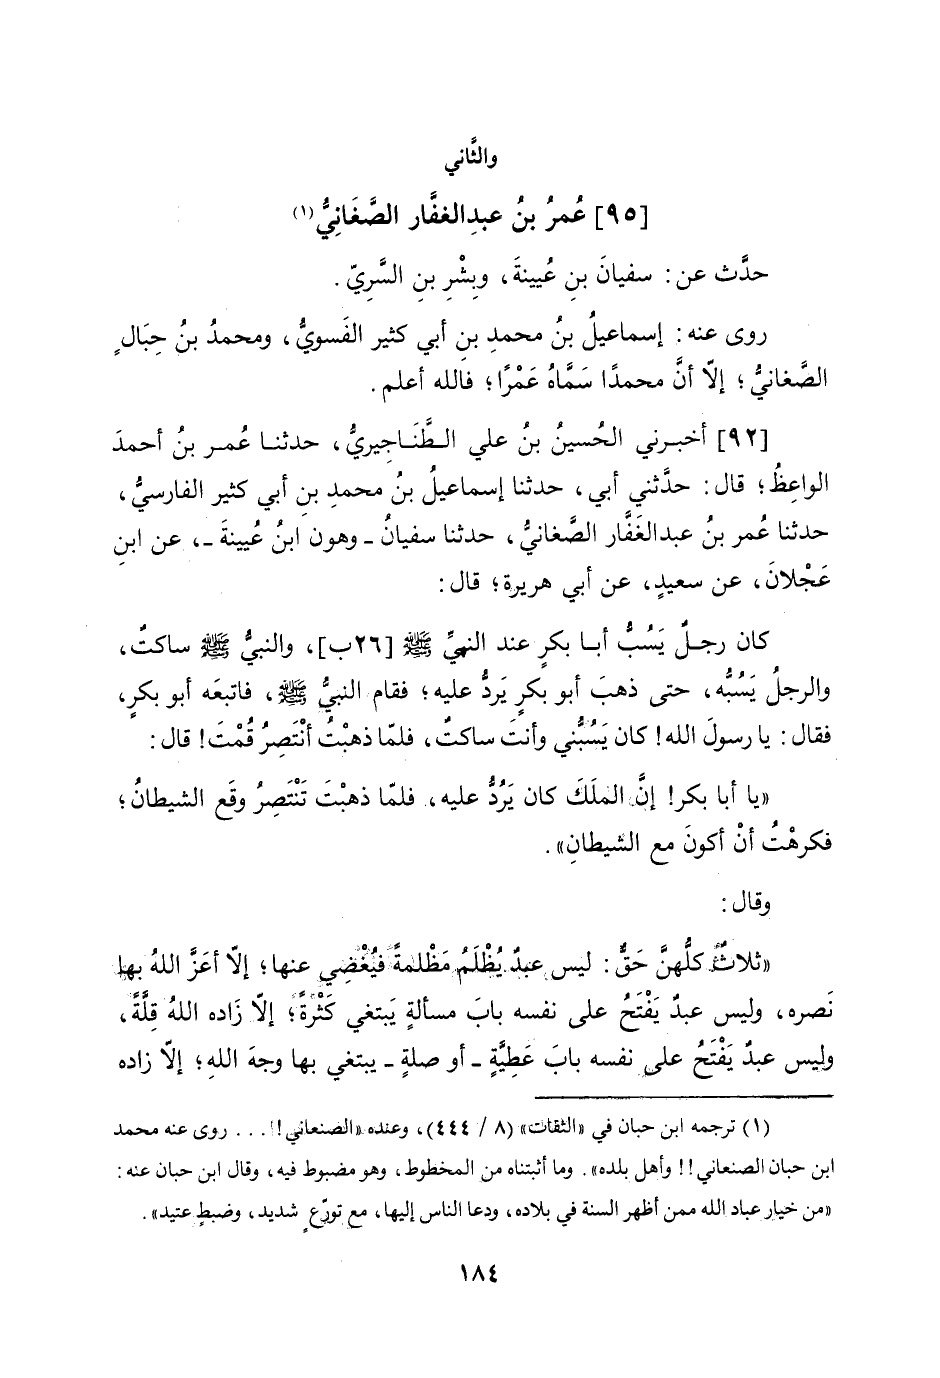 والثَّاني
[٩٥] عُمرُ بنُ عبدِالغفَّار الصَّغَانِيُّ(١)
حدَّث عن: سفيانَ بنِ عُيينةَ، وبِشْرِ بنِ السَّريّ.
روى عنه: إسماعيلُ بنُ محمدِ بنِ أبي كثير الفَسويُّ، ومحمدُ بنُ حِبَالٍ
الصَّغانيُّ؛ إلّا أنَّ محمدًا سَمَّاهُ عَمْرًا؛ فالله أعلم.
[٩٢] أخبرني الحُسينُ بنُ علي الطَّنَاجيريُّ، حدثنا عُمر بنُ أحمدَ
الواعِظُ؛ قال: حدَّثني أبي، حدثنا إسماعيلُ بنُ محمدِ بنِ أبي كثير الفارسيُّ،
حدثنا عُمر بنُ عبدالغَفَّار الصَّغانيُّ، حدثنا سفيانُ ـ وهون ابنُ عُيينةَ ـ، عن ابنِ
عَجْلانَ، عن سعيدٍ، عن أبي هريرة؛ قال:
كان رجلٌ يَسُبُّ أبا بكرٍ عند النبيِّ ﷺ [٢٦ب]، والنبيُّ ﷺ ساكتٌ،
والرجلُ يَسُبُّه، حتى ذهبَ أبو بكرٍ يَردُّ عليه؛ فقام النبيُّ ﷺ، فاتبعَه أبو بكرٍ،
فقال: يا رسولَ الله! كان يَسُبُّني وأنتَ ساكتٌ، فلمّا ذهبْتُ أنْتَصِرُ قُمْتَ! قال:
«يا أبا بكر! إنَّ المَلَكَ كان يَرُدُّ عليه، فلمّا ذهبْتَ تَنْتَصِرُ وقَع الشيطانُ؛
فكرهْتُ أنْ أكونَ مع الشيطانِ».
وقال:
«ثلاثٌ كلُّهنَّ حَقٌّ: ليس عبدٌ يُظْلَمُ مَظْلمةً فيُغْضِي عنها؛ إلّا أعَزَّ اللهُ بها
نَصره، وليس عبدٌ يَفْتَحُ على نفسه بابَ مسألةٍ يَبتغي كَثْرةً؛ إلّا زَاده اللهُ قِلَّةً،
وليس عبدٌ يَفْتَحُ على نفسه بابَ عَطِيَّةٍ ـ أو صلةٍ ـ يبتغي بها وجهَ اللهِ؛ إلّا زاده
(١) ترجمه ابن حبان في «الثقات» (٨ / ٤٤٤)، وعنده «الصنعاني!! ... روى عنه محمد
ابن حبان الصنعاني!! وأهل بلده». وما أثبتناه من المخطوط، وهو مضبوط فيه، وقال ابن حبان عنه:
«من خيار عباد الله ممن أظهر السنة في بلاده، ودعا الناس إليها، مع تورّعٍ شديد، وضبطٍ عتيد».
١٨٤